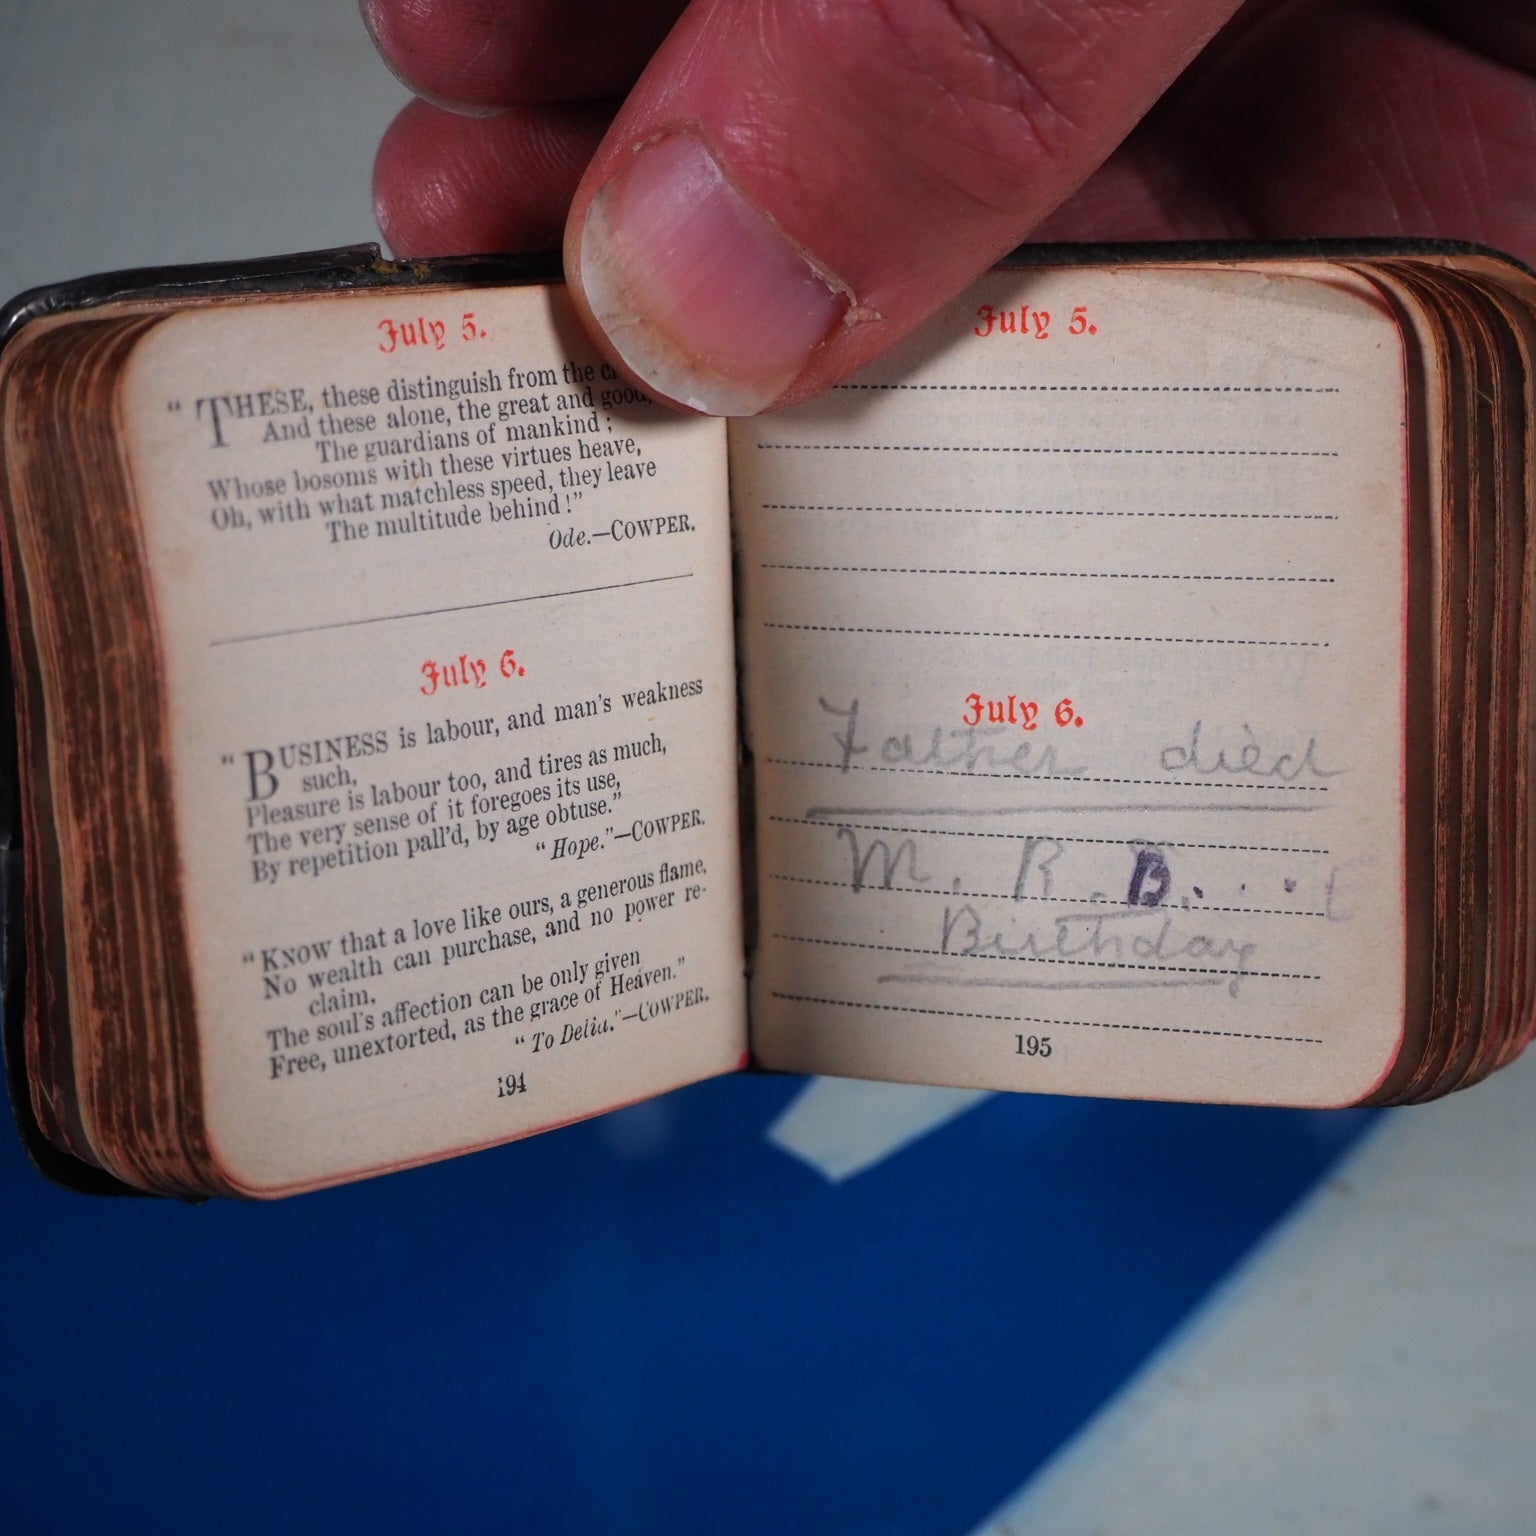 July 5.
"THESE, these distinguish from the
And these alone, the great and good,
The guardians of mankind;
Whose bosoms with these virtues heave,
Oh, with what matchless speed, they leave
The multitude behind!"
Ode.—COWPER.
July 6.
"BUSINESS is labour, and man's weakness
such,
Pleasure is labour too, and tires as much,
The very sense of it foregoes its use,
By repetition pall'd, by age obtuse."
"Hope."—COWPER.
"KNOW that a love like ours, a generous flame,
No wealth can purchase, and no power re-
claim.
The soul's affection can be only given
Free, unextorted, as the grace of Heaven."
"To Delia."—COWPER.
194
July 5.
July 6.
Father died
M. R. B. . . .
Birthday
195